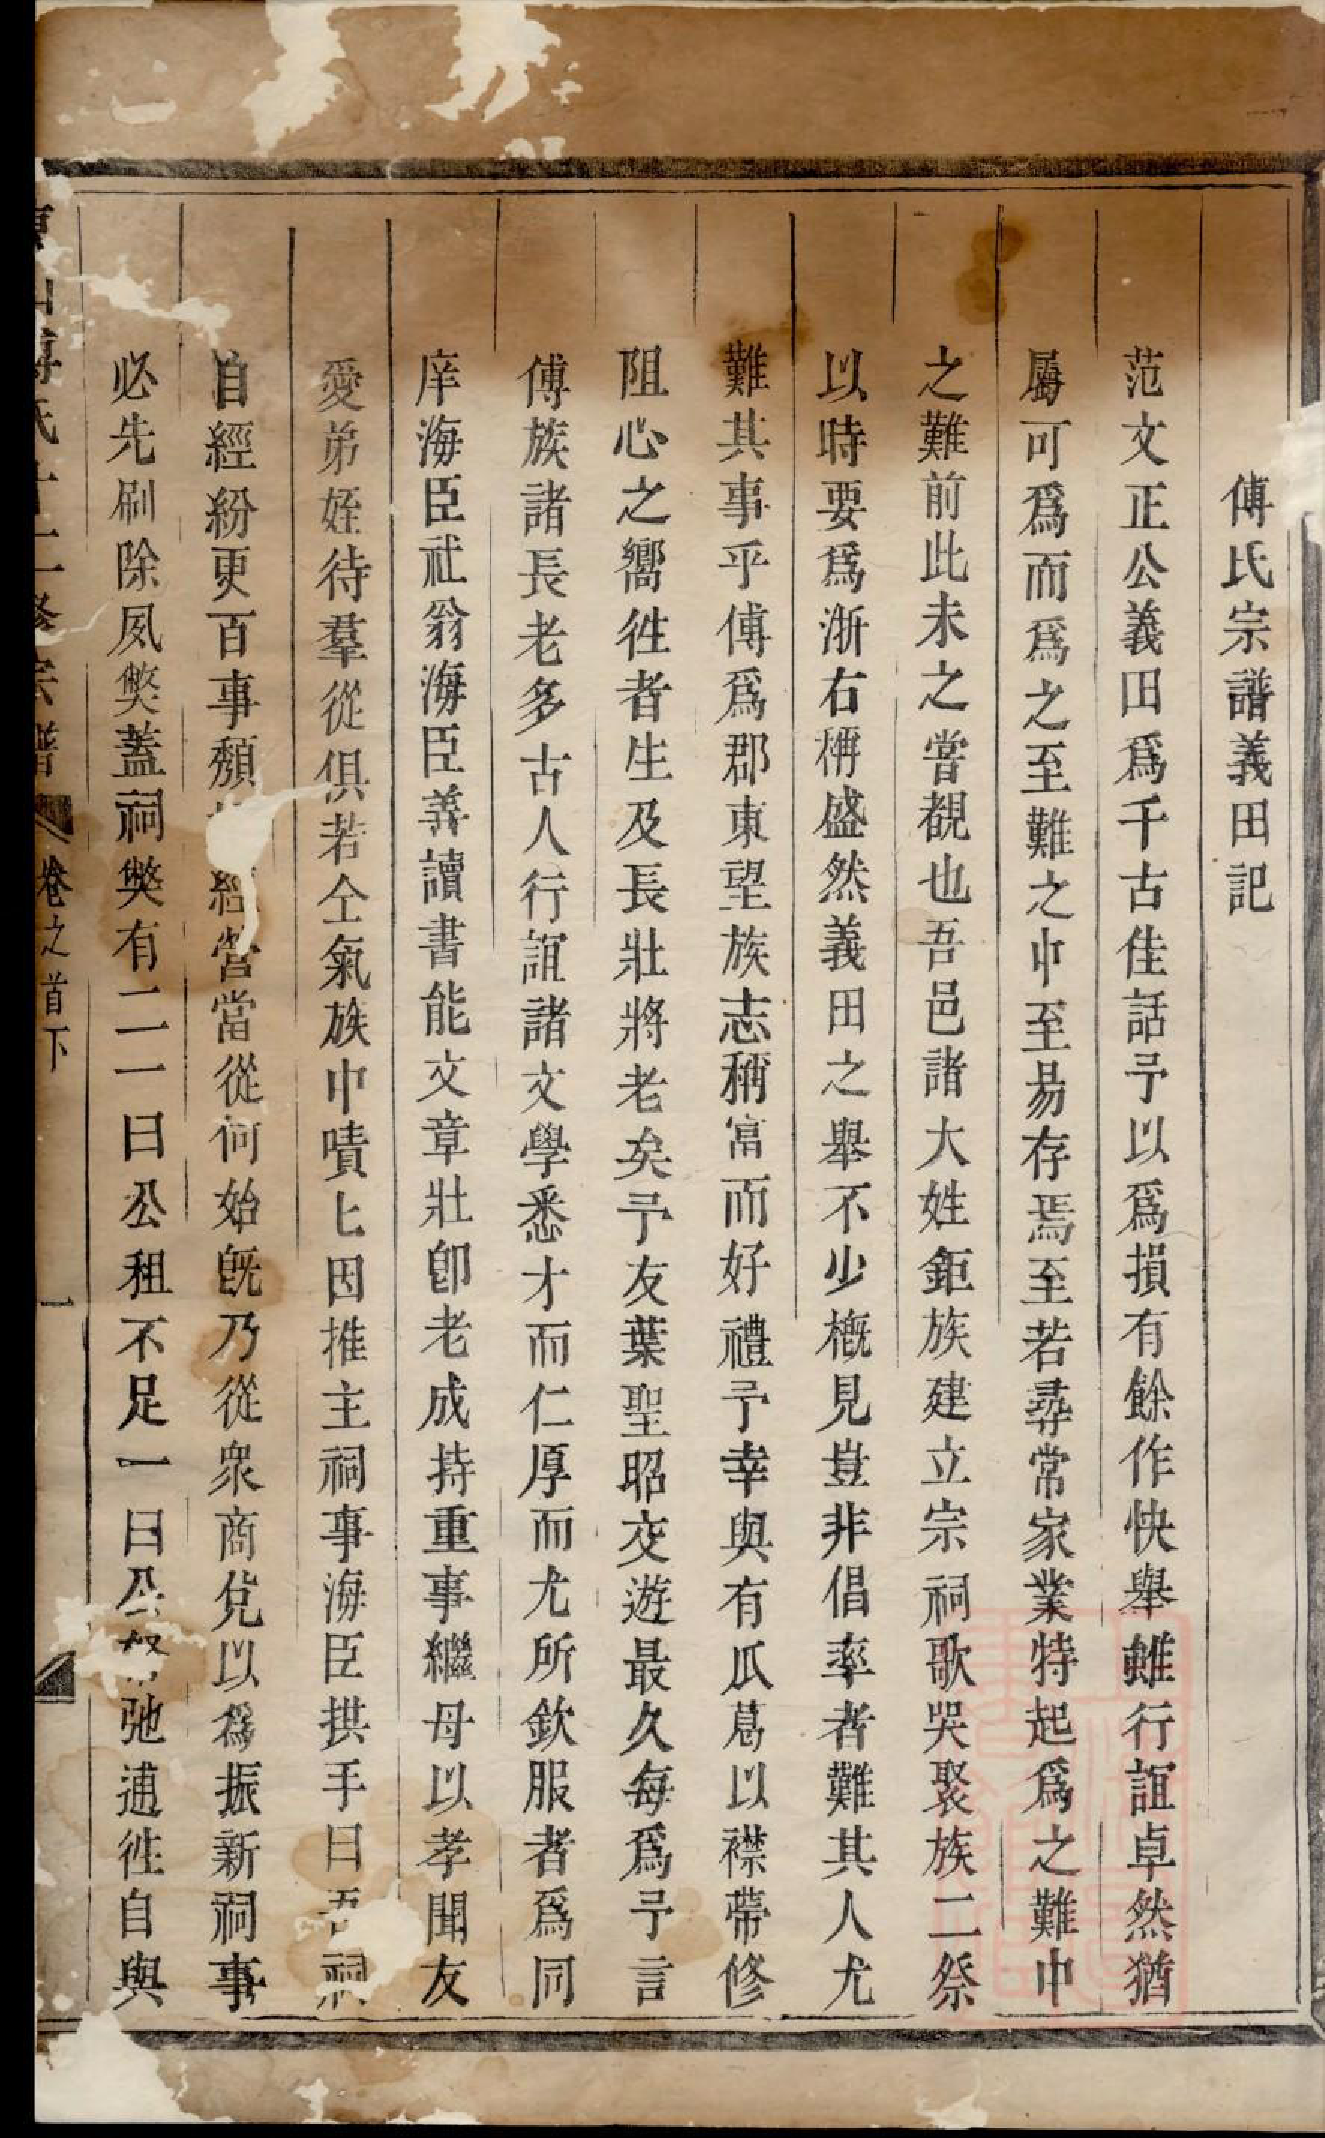 傅氏宗譜義田記
范文正公義田爲千古佳話予以爲損有餘作快舉雖行誼卓然猶
屬可爲而爲之至難之中至易存焉至若尋常家業特起爲之難中
之難前此未之嘗覩也吾邑諸大姓鉅族建立宗祠歌哭聚族二祭
以時要爲浙右稱盛然義田之舉不少槪見豈非倡率者難其人尤
難其事乎傅爲郡東望族志稱富而好禮予幸與有瓜葛以襟帶修
阻心之嚮徃者生及長壯將老矣予友葉聖昭交遊最久每爲予言
傅族諸長老多古人行誼諸文學悉才而仁厚而尤所欽服者爲同
庠海臣社翁海臣善讀書能文章壯卽老成持重事繼母以孝聞友
愛弟姪待羣從俱若仝氣族中嘖匕因推主祠事海臣拱手曰吾祠
自經紛更百事頽經營當從何始旣乃從衆商兌以爲振新祠事
必先刷除夙獘蓋祠獘有二一曰公租不足一曰公弛逋徃自與
山傅氏十二修宗譜 卷之首下 一